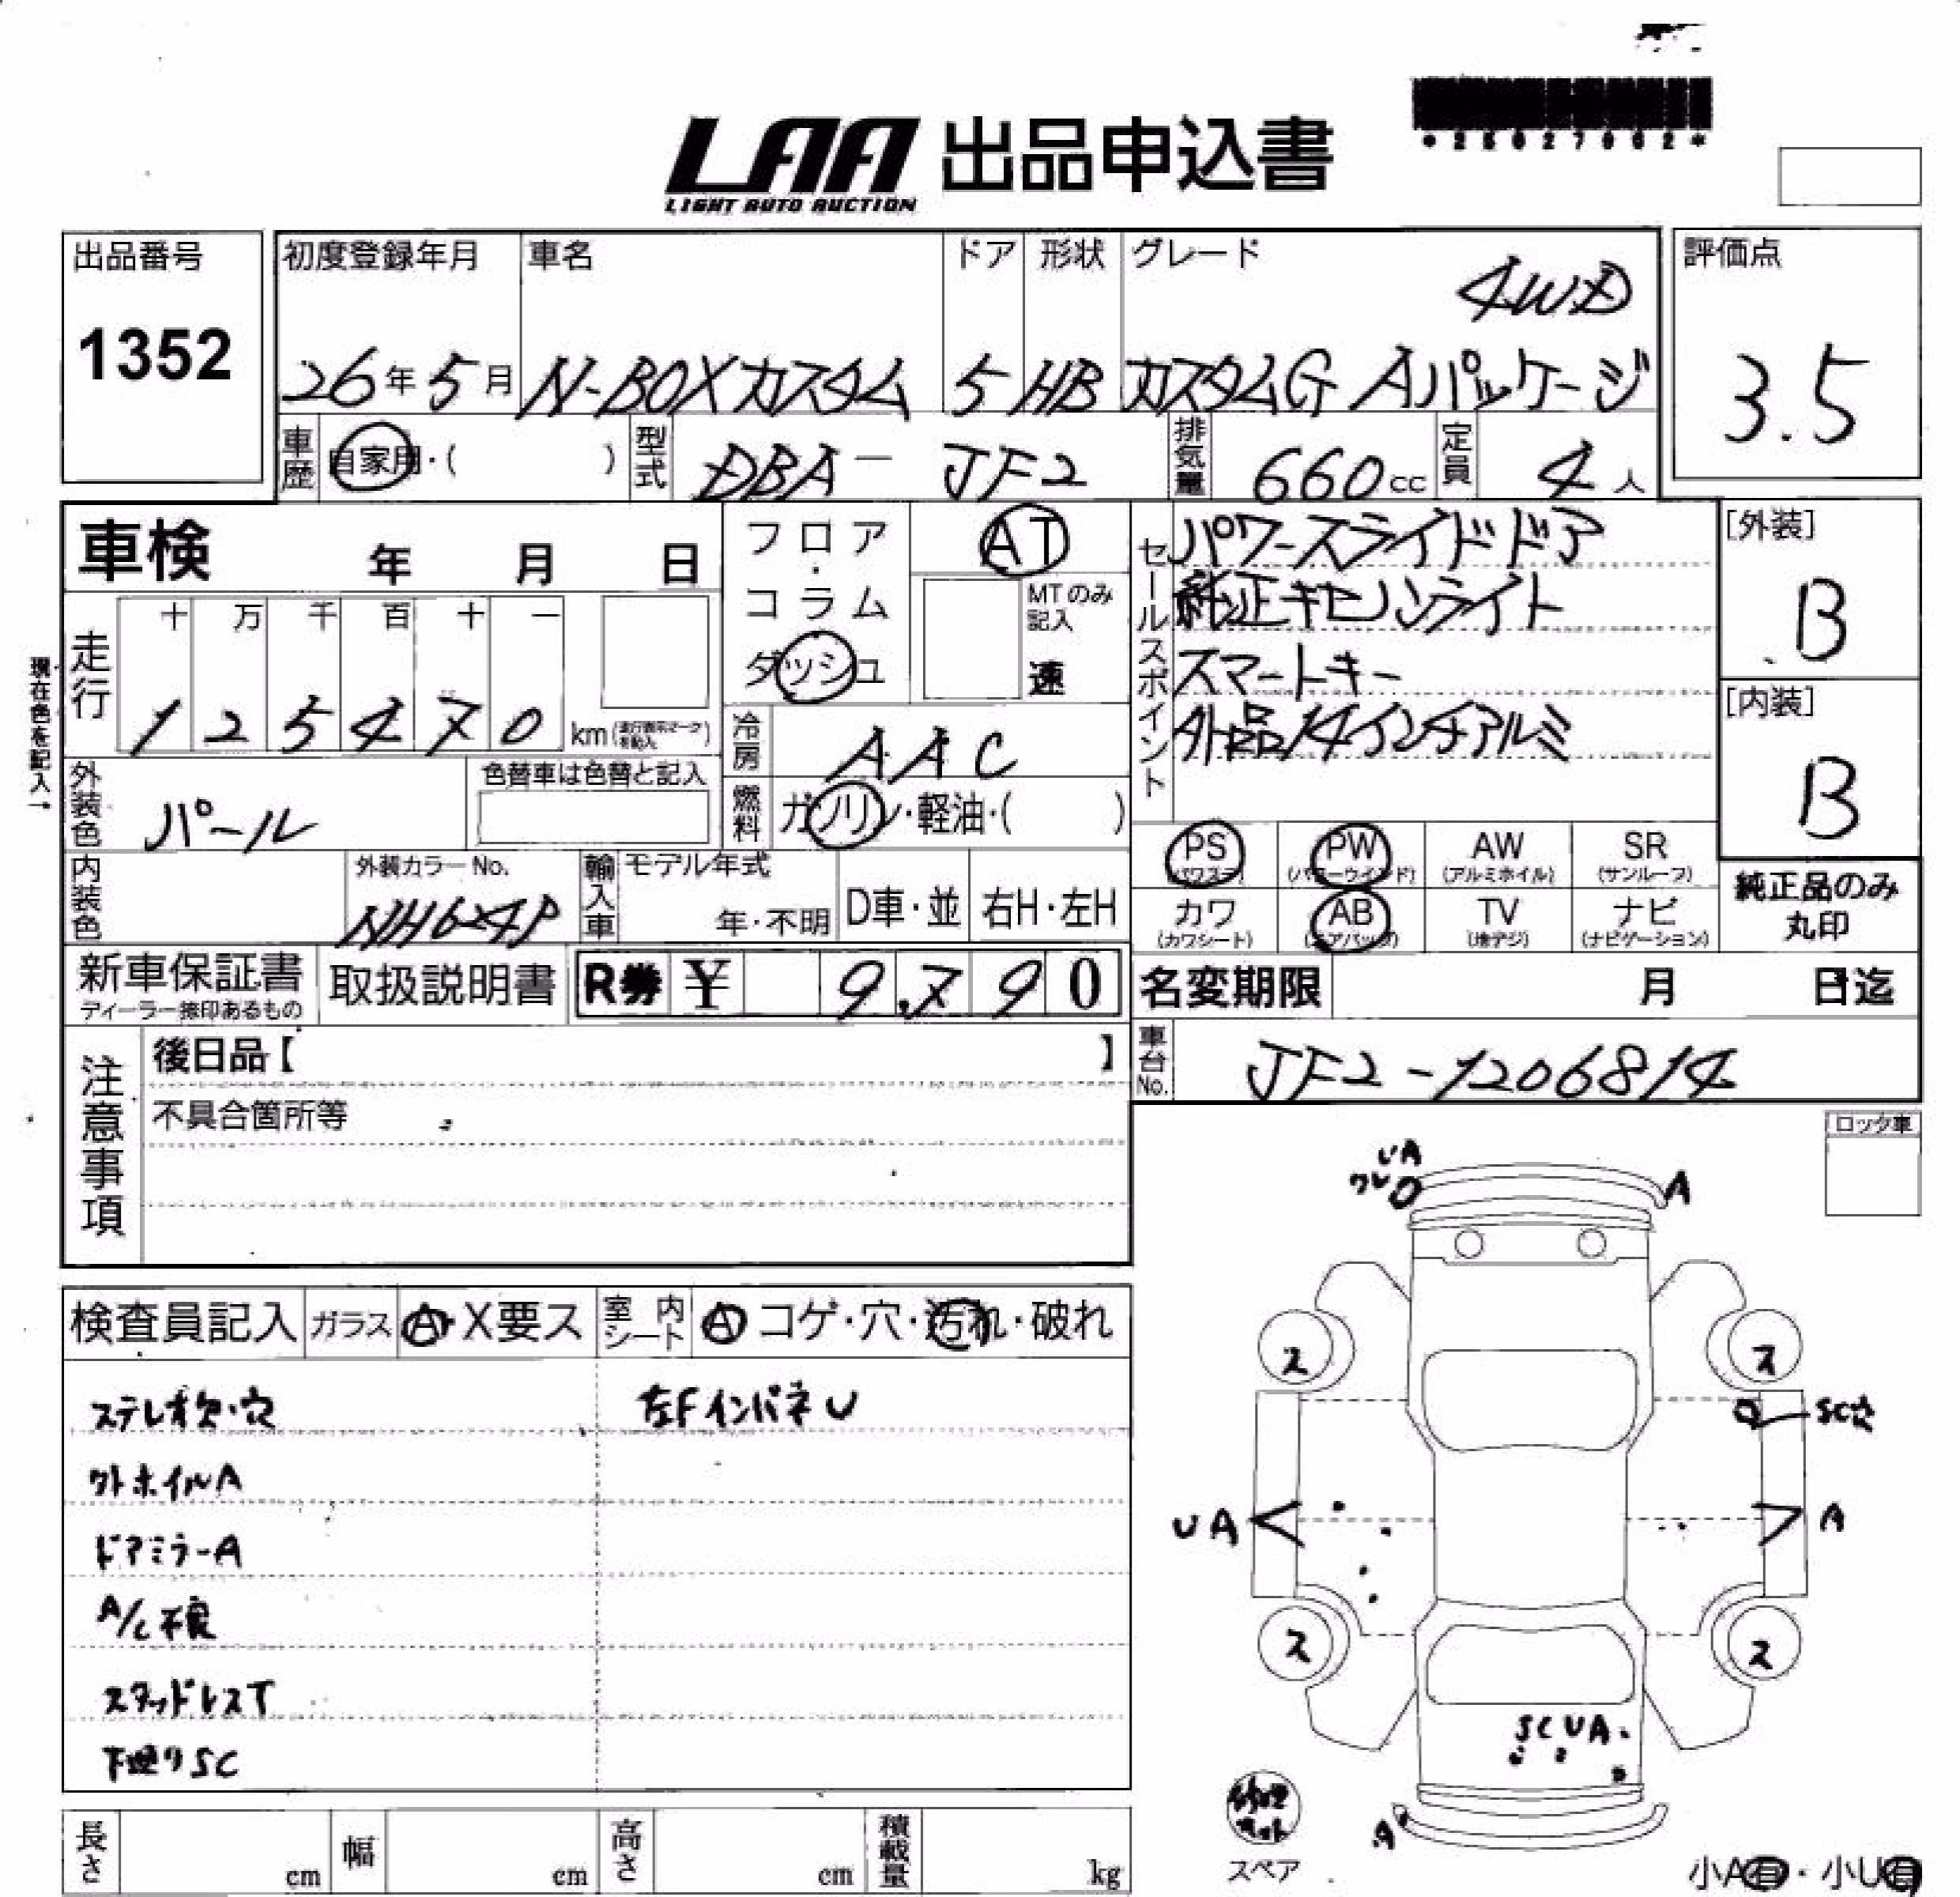 LAA 出品申込書
LIGHT AUTO AUCTION
出品番号
1352
初度登録年月
26年5月
車名
N-BOXカスタム
ドア
5
形状
HB
グレード
4WD
カスタムG Aパッケージ
評価点
3.5
車歴
自家用・( )
型式
DBA- JF2
排気量
660cc
定員
4人
車検 年 月 日
フロア・コラム
ダッシュ
AT
MTのみ記入
速
セールスポイント
パワースライドドア
純正キセノンライト
スマートキー
外品14インチアルミ
[外装]
B
[内装]
B
現在色を記入→
走行
十 万 千 百 十 一
1 2 5 4 7 0 km
冷房
AAC
外装色
パール
色替車は色替と記入
燃料
ガソリン・軽油・( )
PS
(パワステ)
PW
(パワーウインド)
AW
(アルミホイル)
SR
(サンルーフ)
カワ
(カワシート)
AB
(エアバッグ)
TV
(地デジ)
ナビ
(ナビゲーション)
純正品のみ
丸印
内装色
外装カラーNo.
NH624P
輸入車
モデル年式
年・不明
D車・並
右H・左H
新車保証書
ディーラー捺印あるもの
取扱説明書
R券 ¥ 9,790
名変期限 月 日迄
車台No.
JF2-1206814
注意事項
後日品【 】
不具合箇所等
ロック車
検査員記入
ガラス
A・X要ス
室内シート
A コゲ・穴・汚れ・破れ
ステレオ欠・穴
左FインパネU
外ホイルA
ドアミラーA
A/C不良
スタッドレスT
下廻りSC
UA
ワレ
A
ス
ス
SC穴
UA
A
ス
ス
SCUA
A
修理キット
スペア
小A有・小U有
長さ cm
幅 cm
高さ cm
積載量 kg